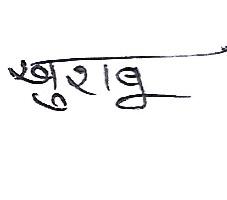 खुशबू